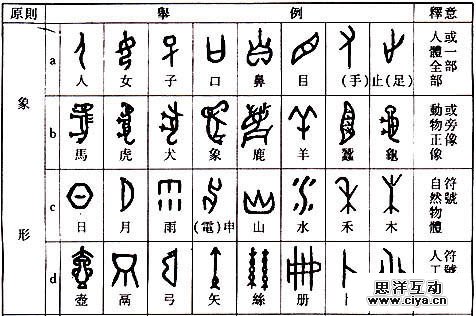 原則 舉例 釋意
象形
a 人 女 子 口 鼻 目 (手) 止(足) 人體全部或一部
b 馬 虎 犬 象 鹿 羊 蠶 龜 動物正像或旁像
c 日 月 雨 (電)申 山 水 禾 木 自然物體符號
d 壺 鬲 弓 矢 絲 册 人工符
思洋互动
www.ciya.cn